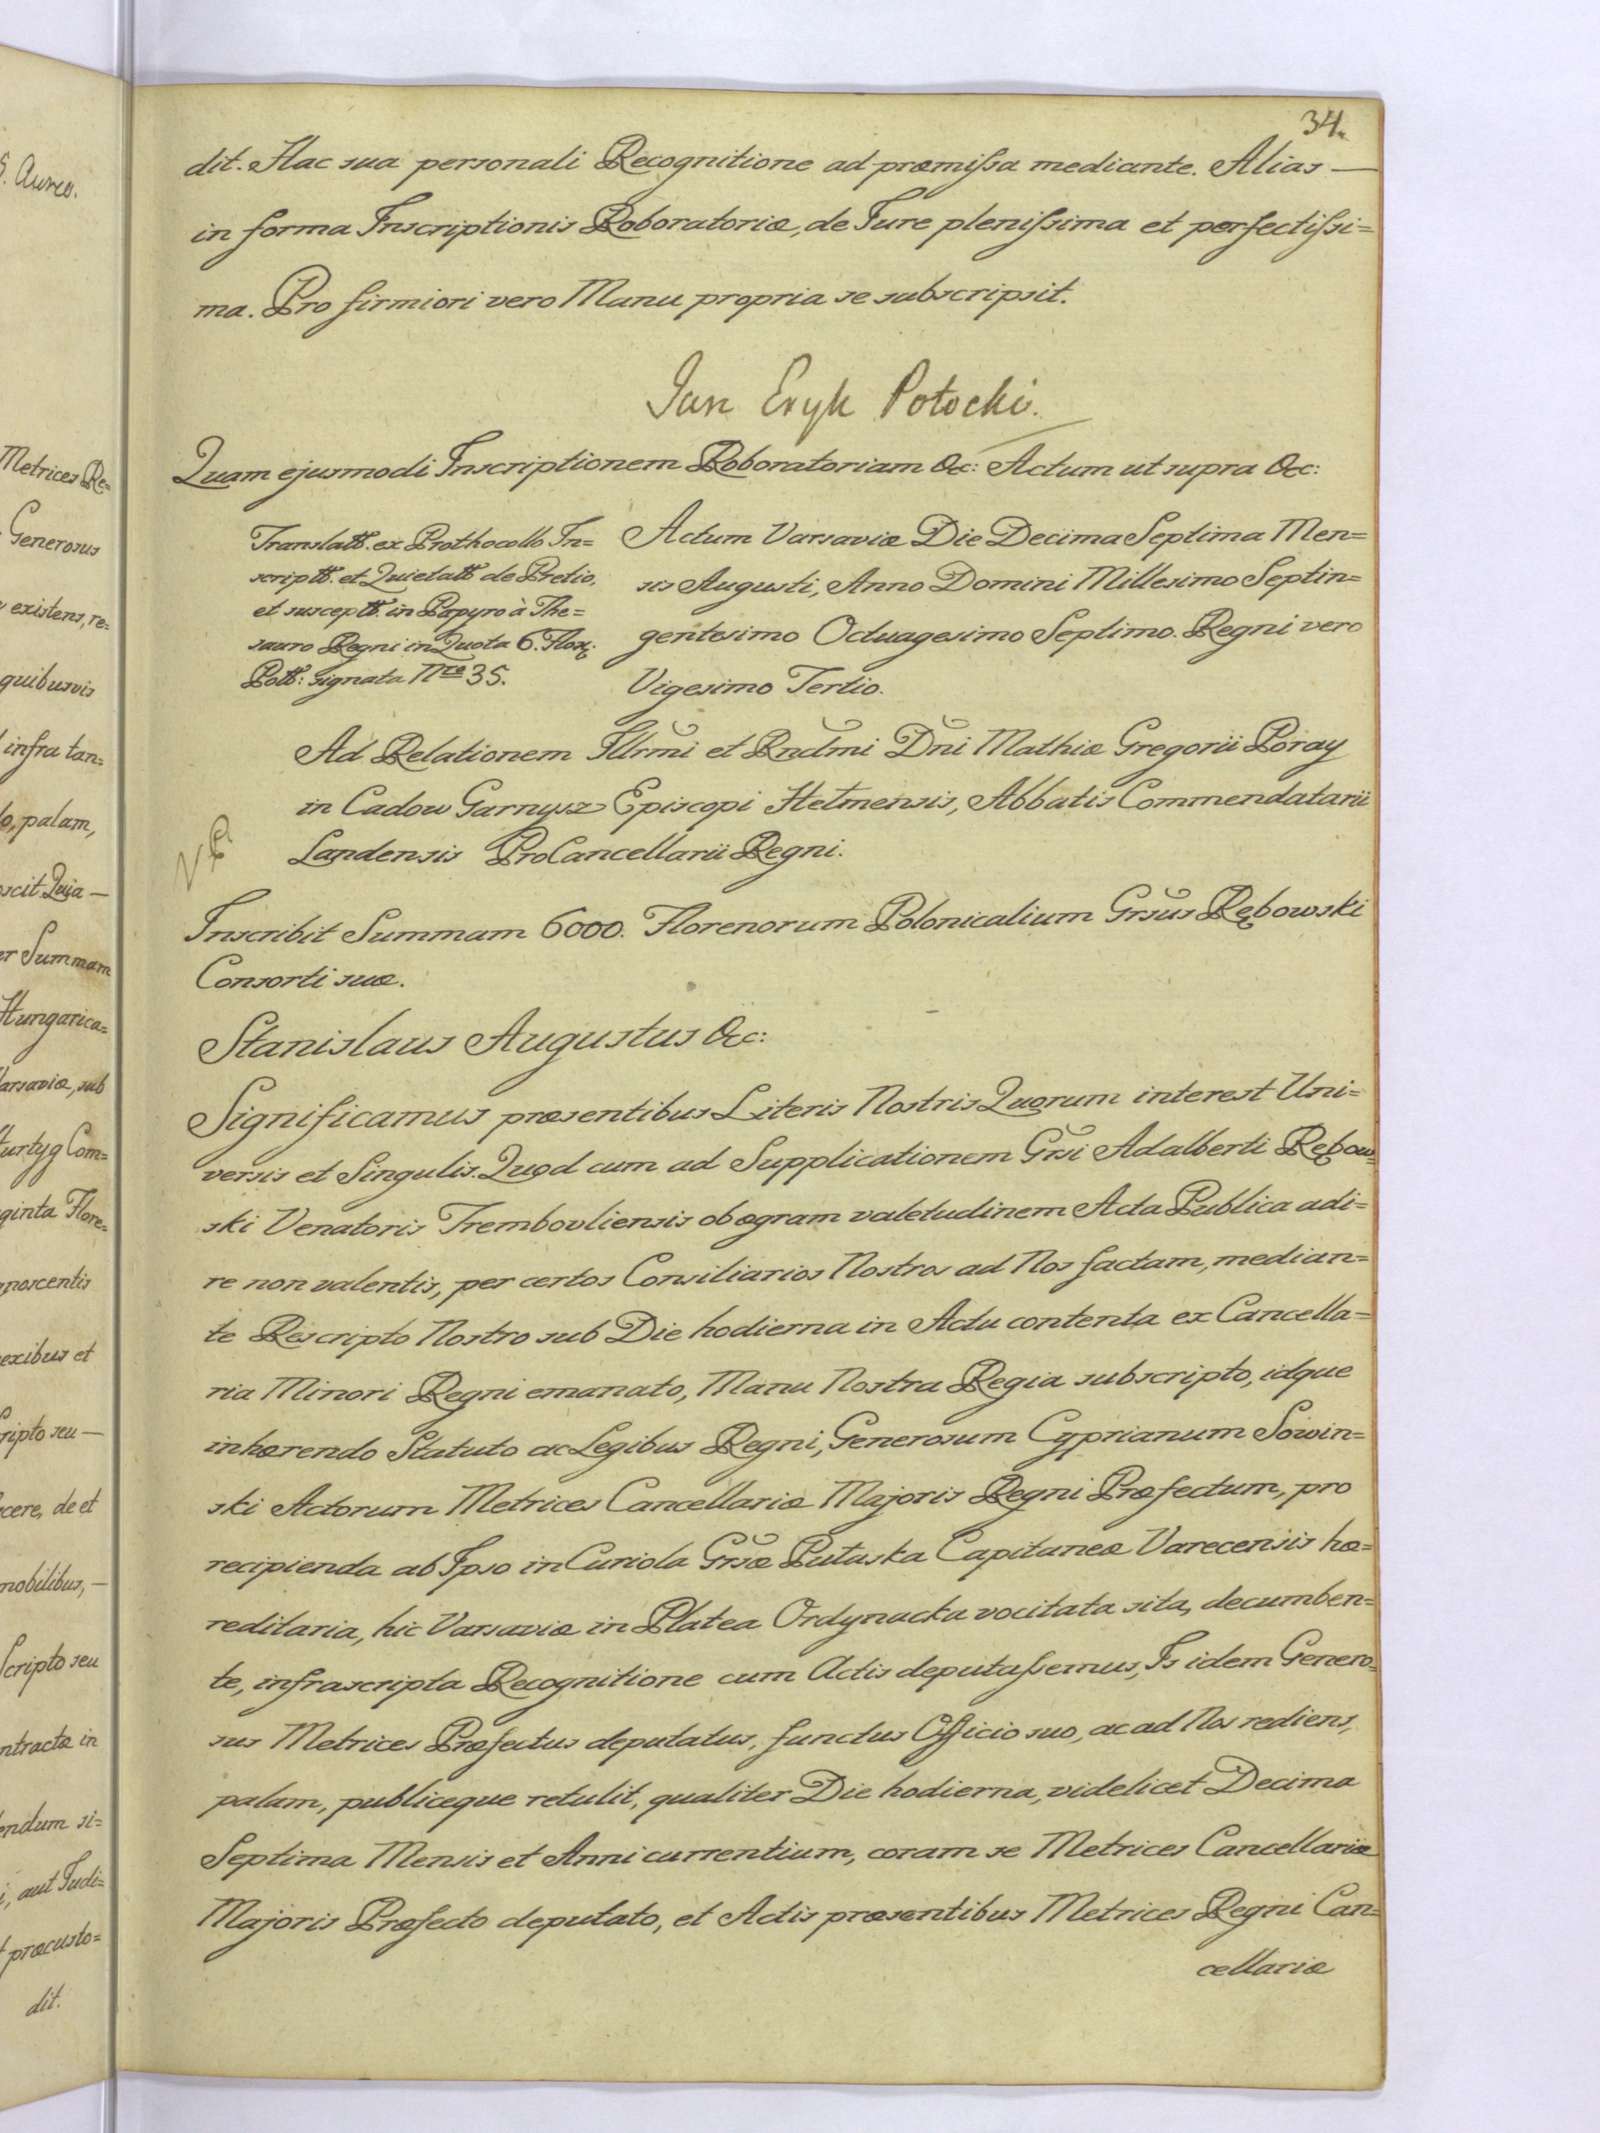 34.
dit. Hac sua personali Recognitione ad præmissa mediante. Alias —
in forma Inscriptionis Roboratoriæ, de Jure plenissima et perfectissi=
ma. Pro firmiori vero Manu propria se subscripsit.
Jan Eryk Potocki.
Quam ejusmodi Inscriptionem Roboratoriam &c: Actum ut supra &c:
Translatt. ex Prothocollo In=
scriptt. et Quietatt. de Pretio,
et susceptt. in Papyro à The=
sauro Regni in Quota 6. Flor.
Poll: signata Nro 35.
Actum Varsaviæ Die Decima Septima Men=
sis Augusti, Anno Domini Millesimo Septin=
gentesimo Octuagesimo Septimo. Regni vero
Vigesimo Tertio.
Ad Relationem Illrmi et Rndmi Dni Mathiæ Gregorii Poray
in Cadow Garnysz Episcopi Hełmensis, Abbatis Commendatarii
Landensis ProCancellarii Regni.
Inscribit Summam 6000. Florenorum Polonicalium Grsus Rębowski
Consorti suæ.
Stanislaus Augustus &c:
Significamus præsentibus Literis Nostris Quorum interest Uni=
versis et Singulis. Quod cum ad Supplicationem Grsi Adalberti Rębow=
ski Venatoris Trembovliensis ob ægram valetudinem Acta Publica adi=
re non valentis, per certos Consiliarios Nostros ad Nos factam, median=
te Rescripto Nostro sub Die hodierna in Actu contenta ex Cancella=
ria Minori Regni emanato, Manu Nostra Regia subscripto, idque
inhærendo Statuto ac Legibus Regni, Generosum Cyprianum Sowin=
ski Actorum Metrices Cancellariæ Majoris Regni Præfectum, pro
recipienda ab Ipso in Curiola Grsæ Putaska Capitaneæ Varecensis hæ=
reditaria, hic Varsaviæ in Platea Ordynacka vocitata sita, decumben=
te, infrascripta Recognitione cum Actis deputassemus, Is idem Genero=
sus Metrices Præfectus deputatus, functus Officio suo, ac ad Nos rediens,
palam, publiceque retulit, qualiter Die hodierna, videlicet Decima
Septima Mensis et Anni currentium, coram se Metrices Cancellariæ
Majoris Præfecto deputato, et Actis præsentibus Metrices Regni Can=
cellariæ